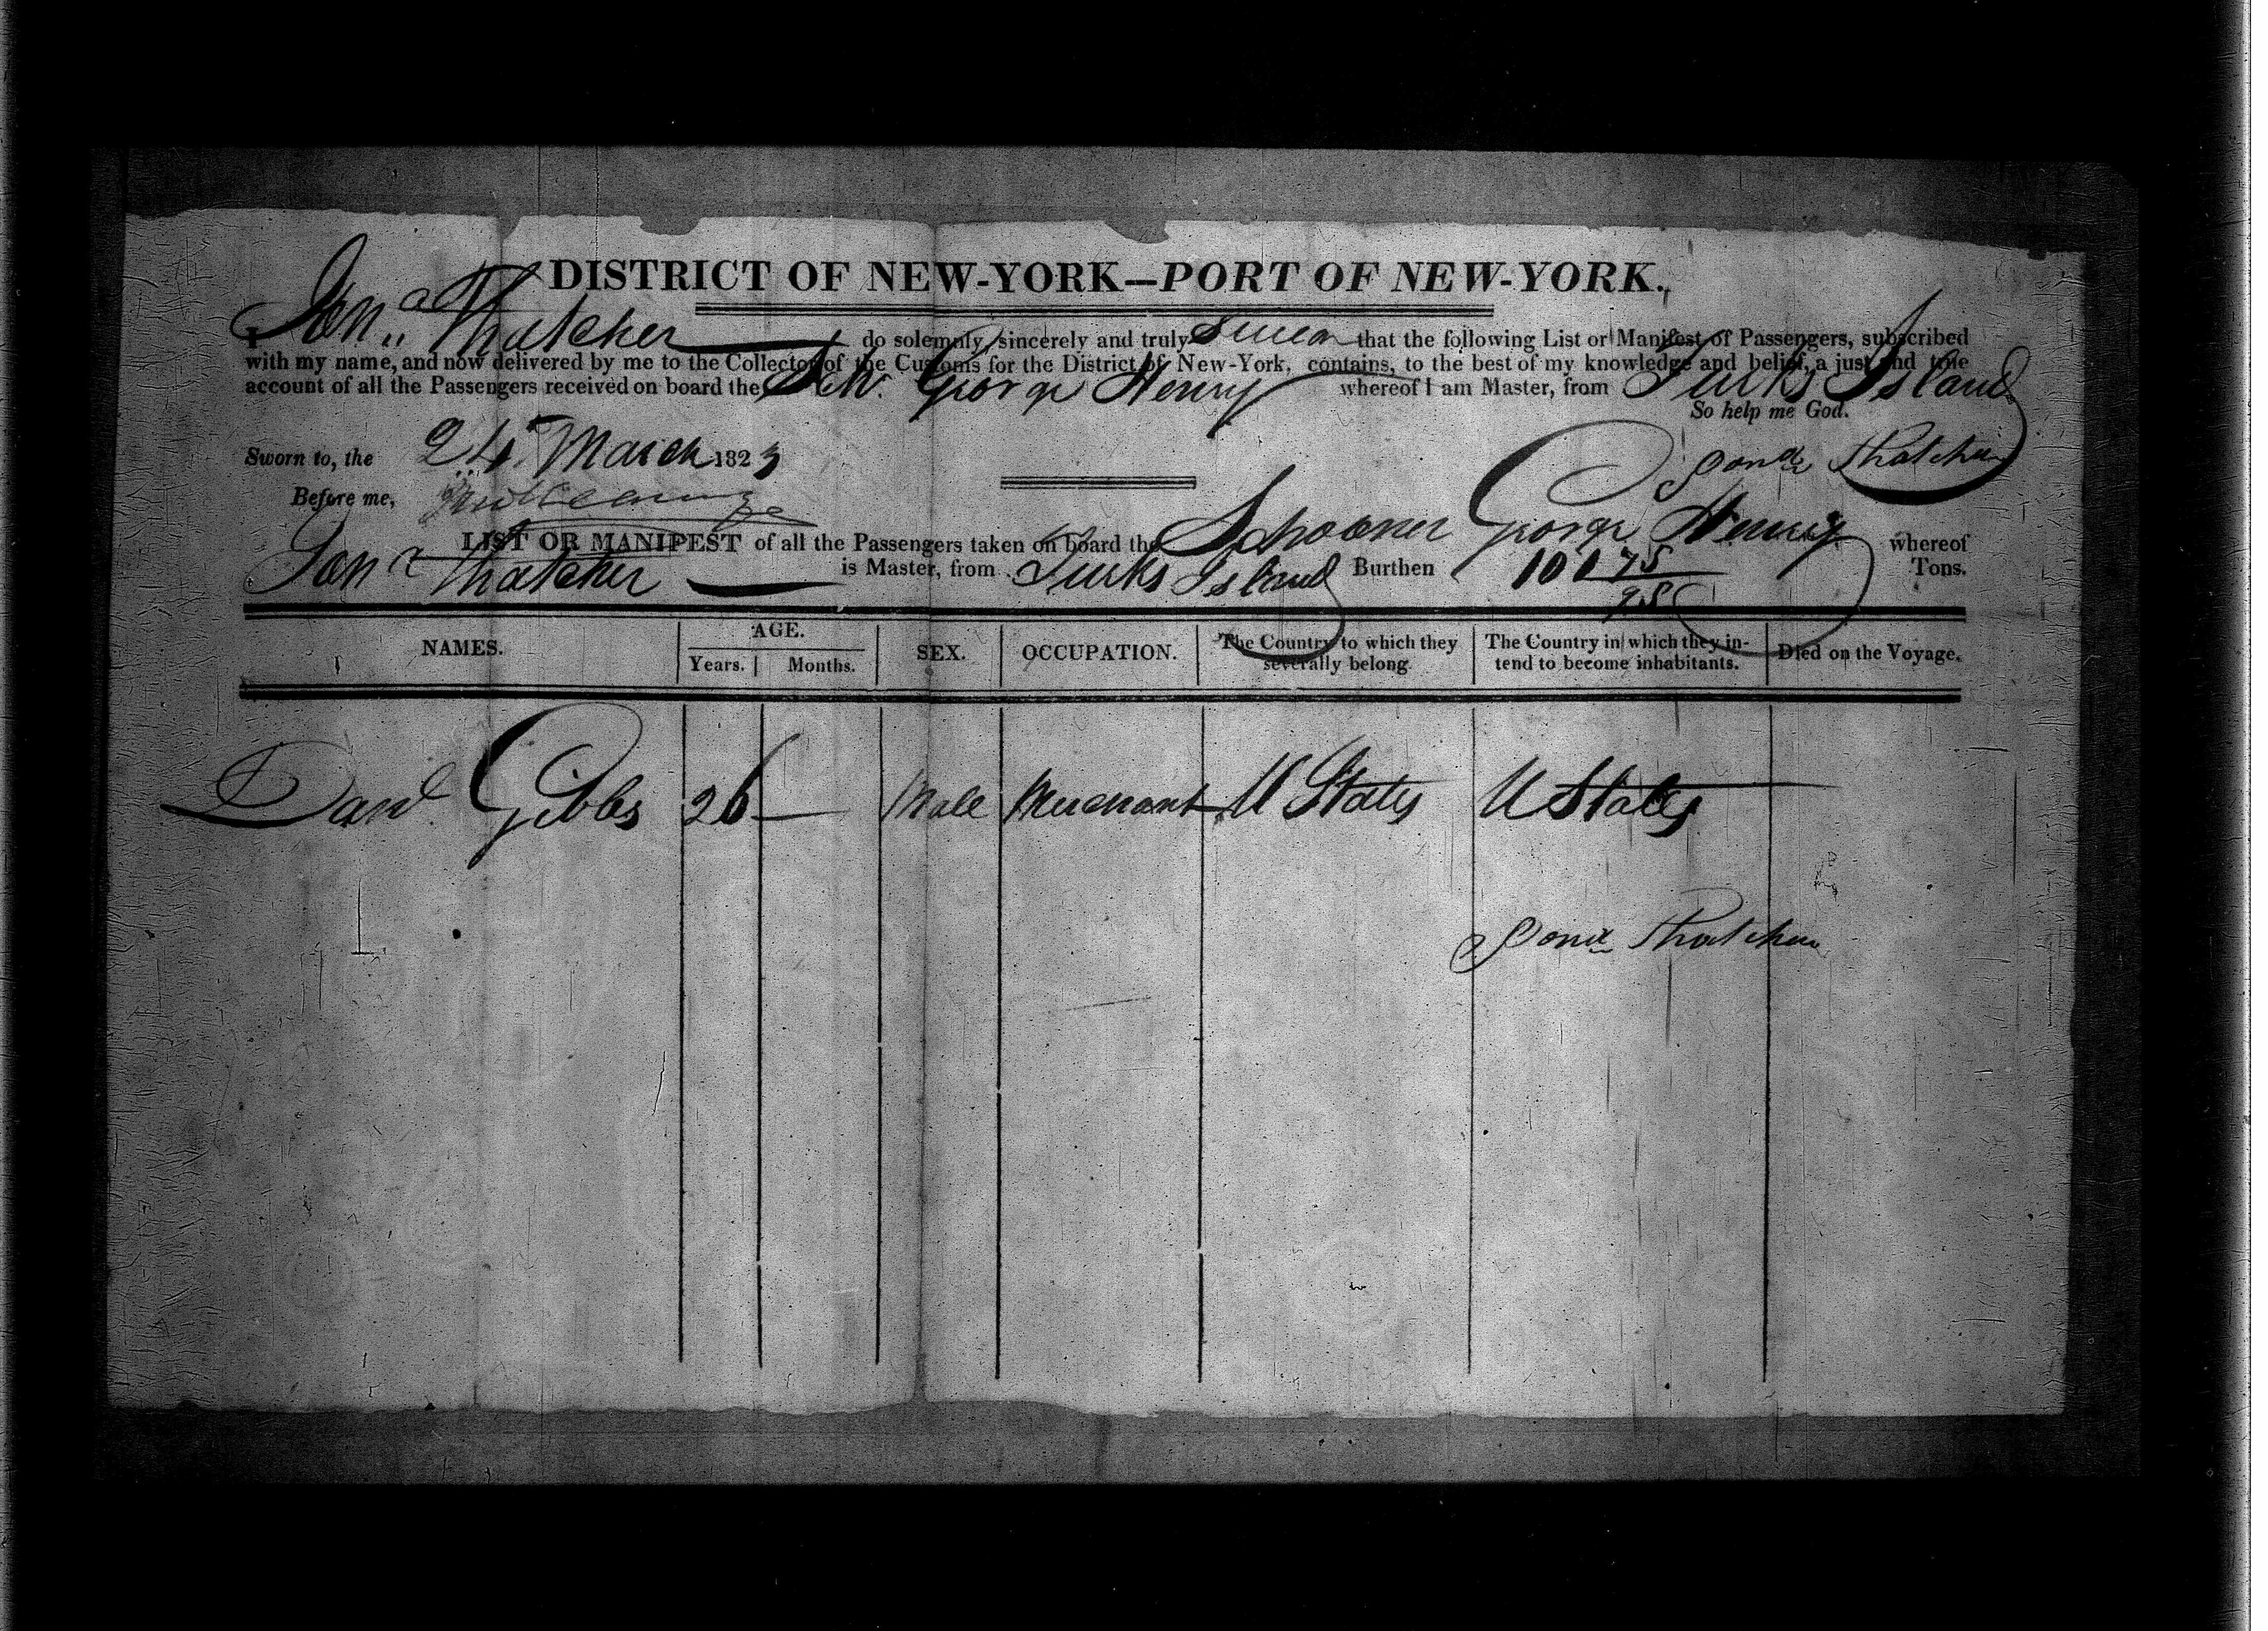 DISTRICT OF NEW-YORK—PORT OF NEW-YORK.
I Jona Thatcher do solemnly, sincerely and truly swear that the following List or Manifest of Passengers, subscribed
with my name, and now delivered by me to the Collector of the Customs for the District of New-York, contains, to the best of my knowledge and belief, a just and true
account of all the Passengers received on board the Schr. George Henry whereof I am Master, from Turks Island
So help me God.
Sworn to, the 24 March 1823
Jona Thatcher
Before me,
LIST OR MANIFEST of all the Passengers taken on board the Schooner George Henry whereof
Jona Thatcher is Master, from Turks Island Burthen 101 75/95 Tons.
NAMES. AGE. Years. Months. SEX. OCCUPATION. The Country to which they severally belong. The Country in which they intend to become inhabitants. Died on the Voyage.
Danl. Gibbs 26 — Male Merchant U States U States
Jona Thatcher